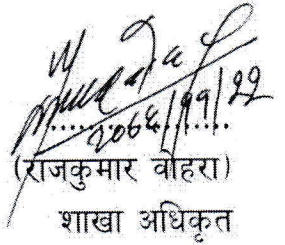 २०६६/११/२२
(राजकुमार वोहरा)
शाखा अधिकृत